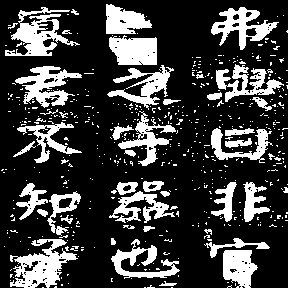 弗與曰非官
之守器也
寡君不知子